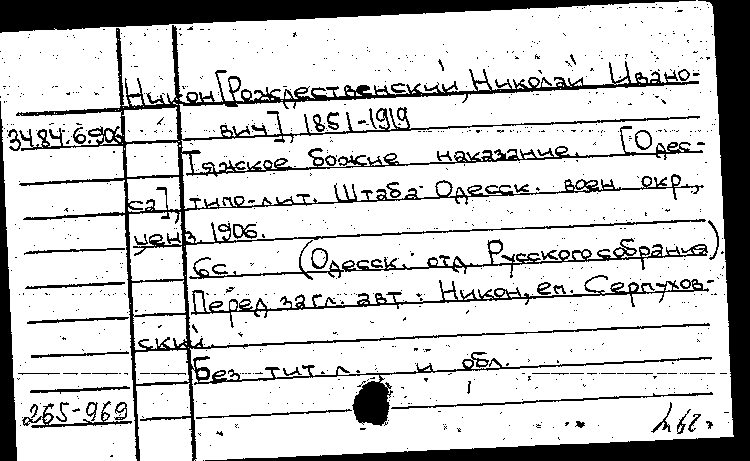 Никон [Рождественский, Николай Ивано-
34.84.6.906 вич], 1851-1919
Тяжкое божие наказание. [Одес-
са], типо-лит. Штаба Одесск. воен. окр.,
ценз. 1906.
6с. (Одесск. отд. Русского собрания).
Перед загл. авт.: Никон, еп. Серпухов-
ский.
Без тит. л. и обл.
265-969